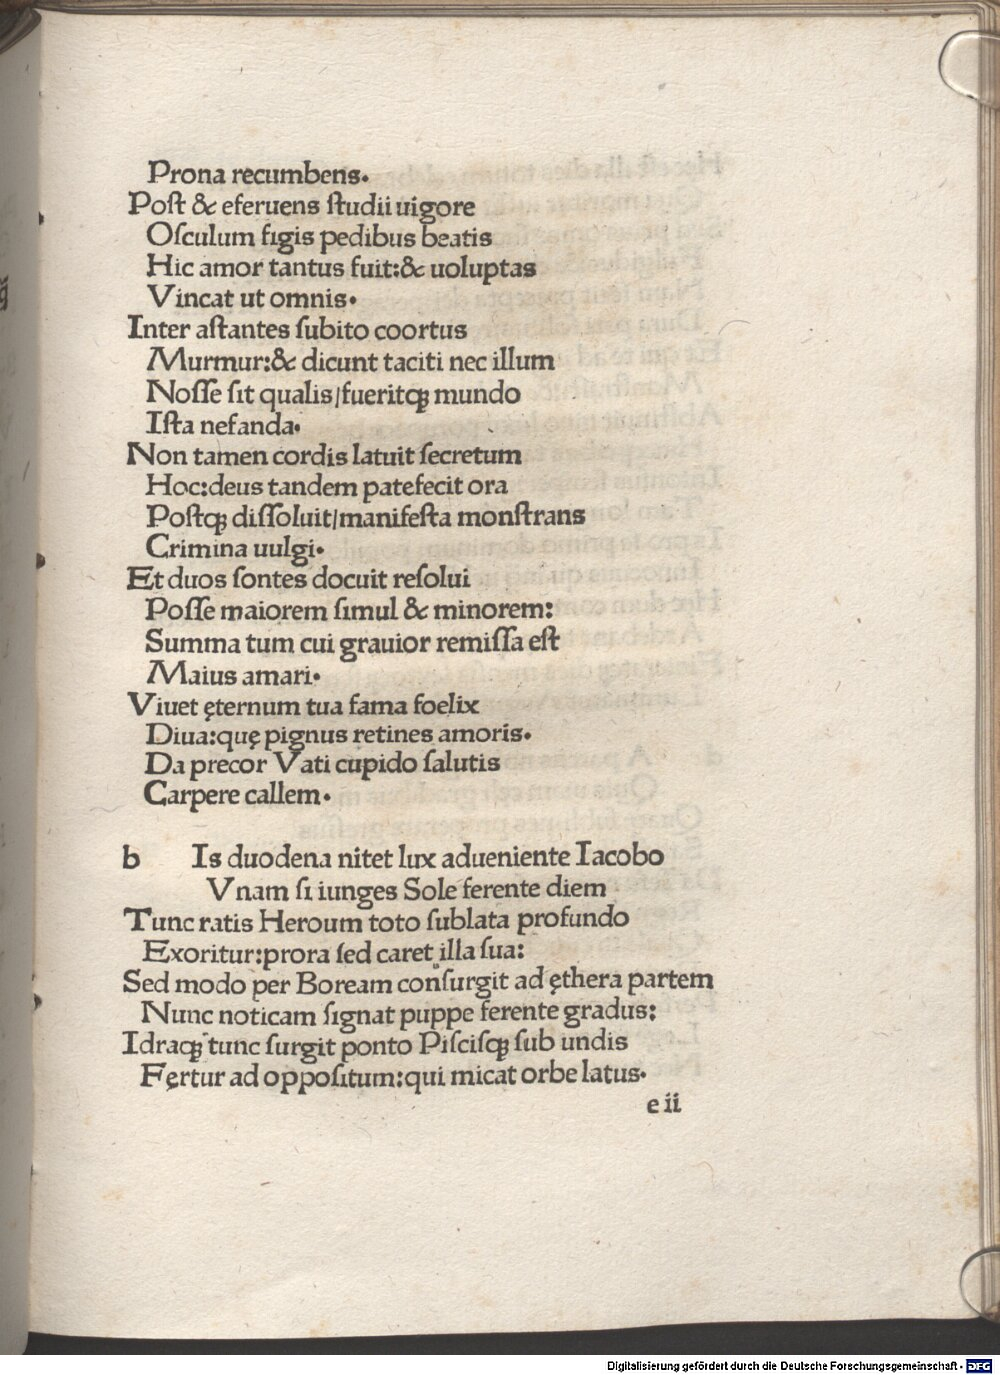 Prona recumbens.
Poſt & eferuens ſtudii uigore
Oſculum figis pedibus beatis
Hic amor tantus fuit:& uoluptas
Vincat ut omnis.
Inter aſtantes ſubito coortus
Murmur:& dicunt taciti nec illum
Noſſe ſit qualis/fueritqꝫ mundo
Iſta nefanda.
Non tamen cordis latuit ſecretum
Hoc:deus tandem patefecit ora
Poſtqꝫ diſſoluit/manifeſta monſtrans
Crimina uulgi.
Et duos ſontes docuit reſolui
Poſſe maiorem ſimul & minorem:
Summa tum cui grauior remiſſa eſt
Maius amari.
Viuet ęternum tua fama foelix
Diua:quę pignus retines amoris.
Da precor Vati cupido ſalutis
Carpere callem.
b Is duodena nitet lux adueniente Iacobo
Vnam ſi iunges Sole ferente diem
Tunc ratis Heroum toto ſublata profundo
Exoritur:prora ſed caret illa ſua:
Sed modo per Boream conſurgit ad ęthera partem
Nunc noticam ſignat puppe ferente gradus:
Idraqꝫ tunc ſurgit ponto Piſciſqꝫ ſub undis
Fęrtur ad oppoſitum:qui micat orbe latus.
e ii
Digitalisierung gefördert durch die Deutsche Forschungsgemeinschaft - DFG